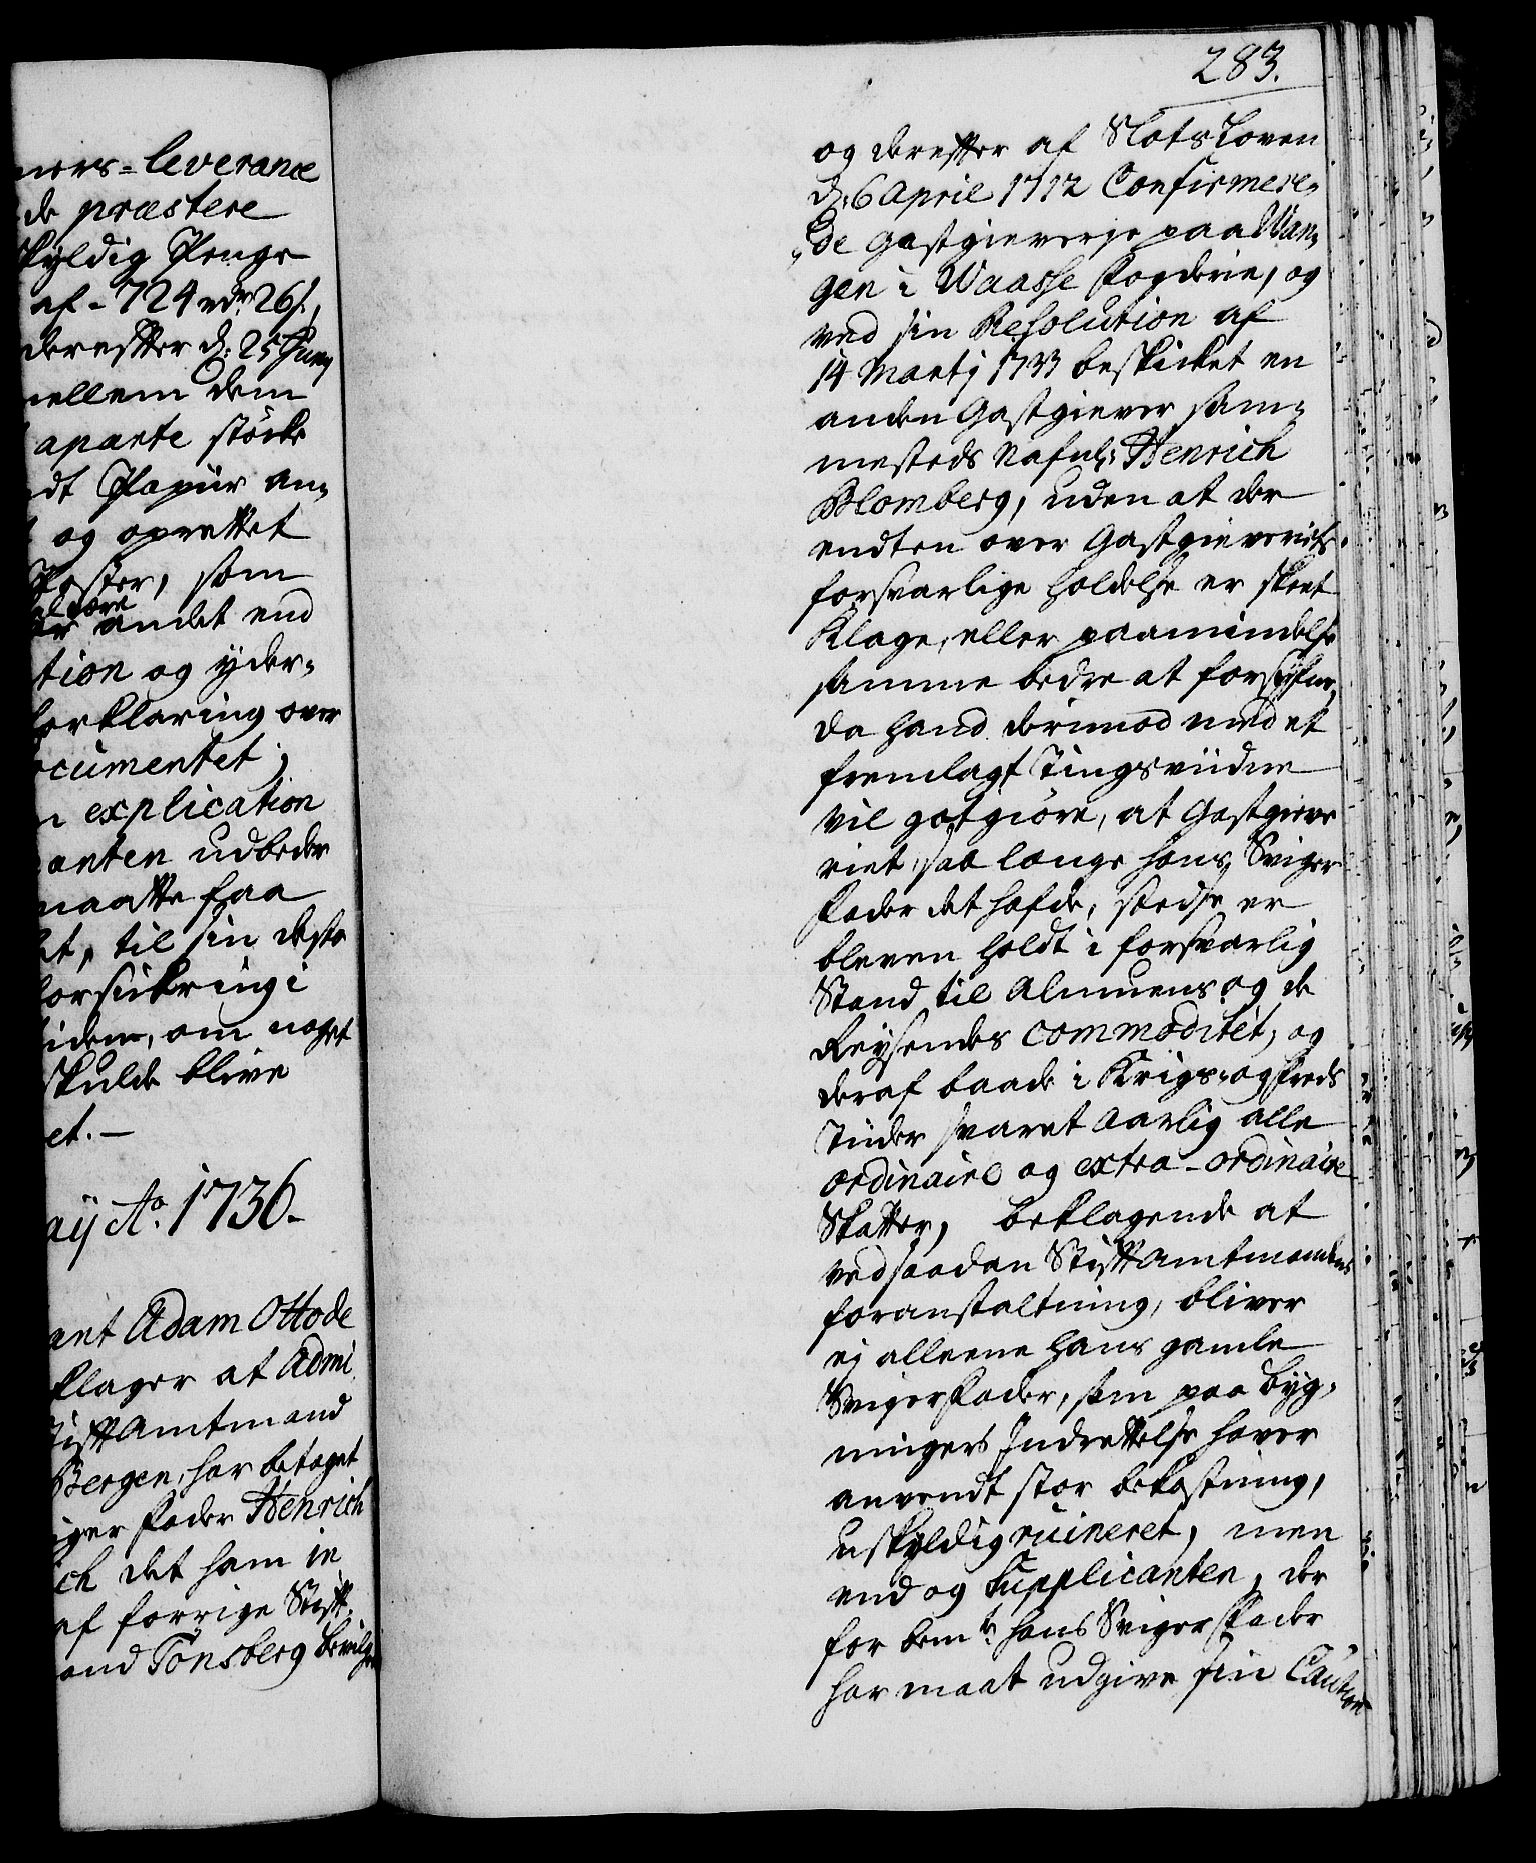 ners-leverance
de præstere
skyldig Penge
af - 724 rdr 26 s,
derefter d: 25 Juny
mellem dem
aparte störke
dt Papiir an-
og oprettet
Poster, som
være
er andet end
tion og yder-
forklaring over
ocumentet,
n explication
anten udbeder
maatte faa
et, til sin desto
forsikring i
iden, om noget
skulde blive
et. -
aij Ao. 1736.
ant Adam Otto de
klager at Admi
Stiftamtmand
Bergen, har betaget
iger Fader Henrich
ich det ham in
af forrige Stift-
and Tönsberg bevilge
283.
og derefter af SlotsLoven
d: 6 April 1712 Confirmere-
de gastgieverje paa Wan-
gen i Waasse Fogderie, og
ved sin Resolution af
14 Martj 1733 beskicket en
anden Gastgiever sam-
mesteds Nafnl: Henrich
Blomberg, uden at der
endten over Gastgieveriets
forsvarlige holdelse er skeet
Klage, eller paamindelse
samme bedre at forsyne,
da hand derimod med et
fremlagt Tingsvidne
vil gotgiøre, at Gastgieve
riet, saa længe hans Sviger
Fader det hafde, stedse er
bleven holdt i forsvarlig
Stand til Almuens og de
Reysendes commoditet, og
deraf baade i Krigs- og Freds
Tider svaret Aarlig alle
ordinaire og extra-ordinaire
Skatter, beklagende at
ved saadan Stiftamtmandens
foranstaltning, bliver
ej alleene hans gamle
SvigerFader, som paa byg-
ningers Indrettelse haver
anvendt stor bekostning,
uskyldig ruineret, men
end og Supplicanten, der
for bemte hans SvigerFader
har maat udgive sin Caution